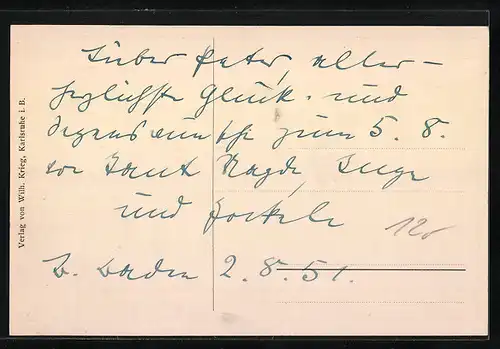 Lieber Peter, aller-
herzlichste Glück- und
Segenswünsche zum 5. 8.
von Tante Magda, Inge
und
B. Baden 2. 8. 51.
120
Verlag von Wilh. Krieg, Karlsruhe i. B.